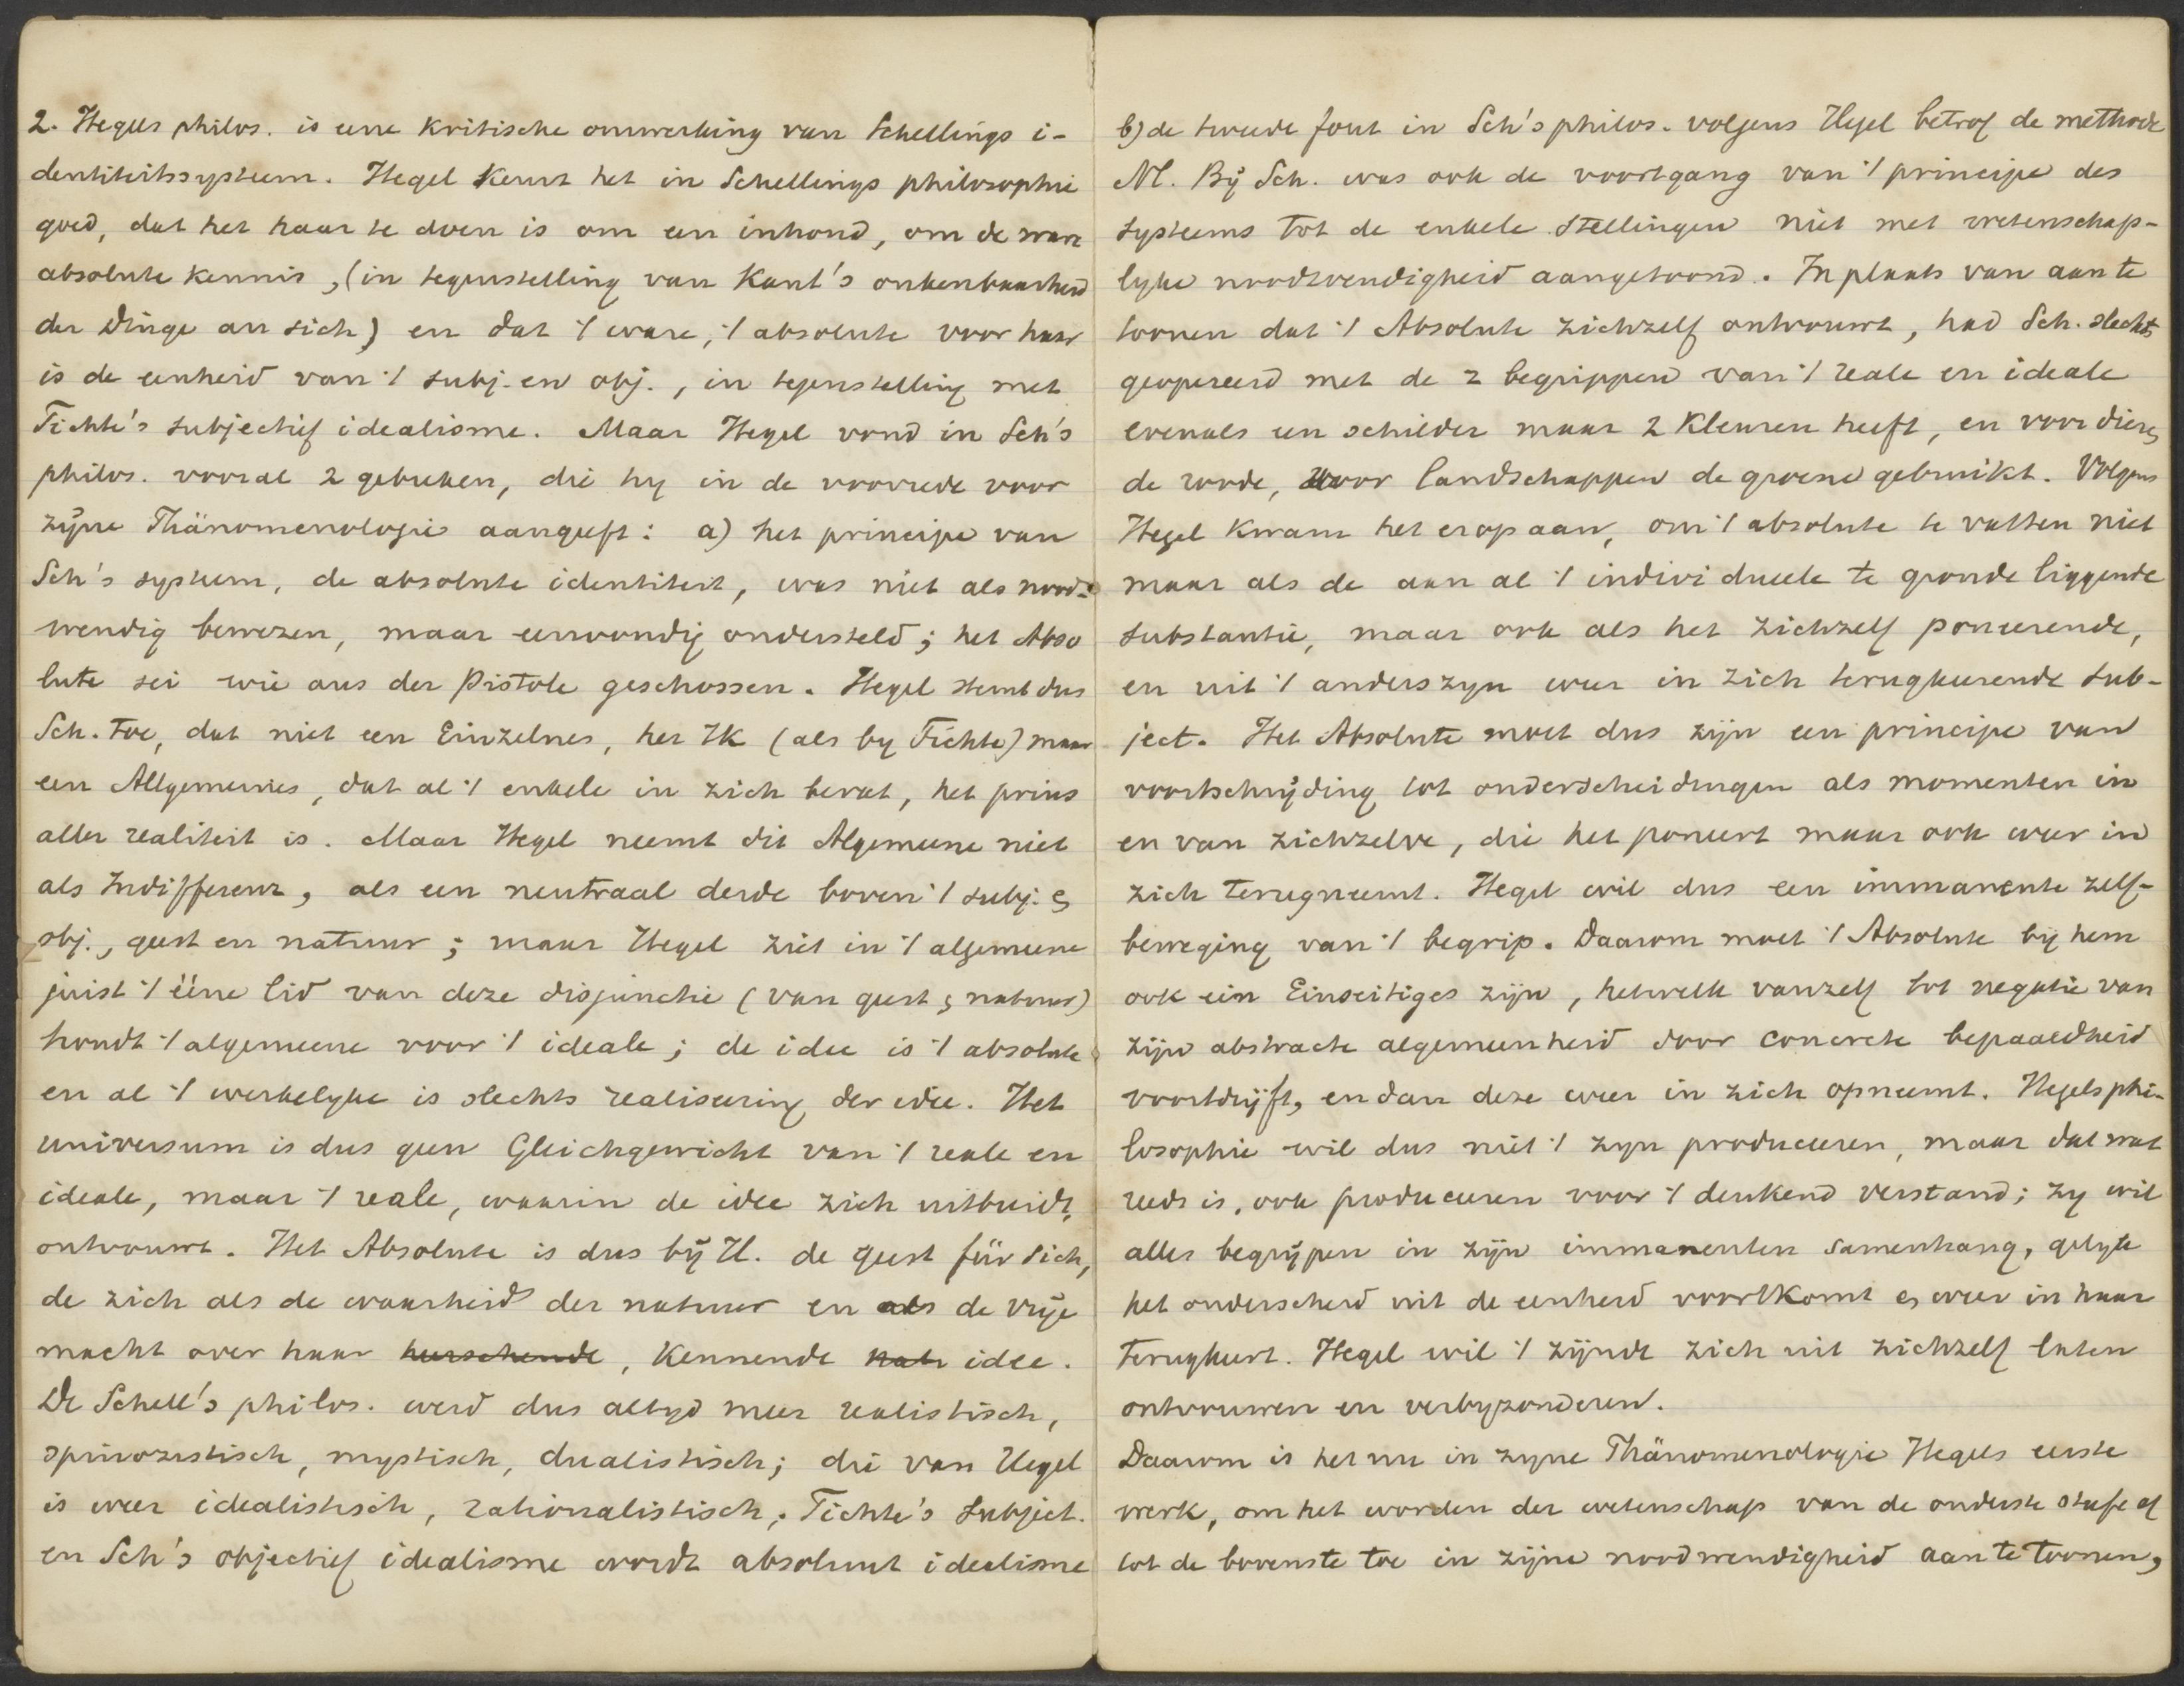 2. Hegels philos. is eene kritische omwerking van Schellings i-
dentiteitssysteem. Hegel keurt het in Schellings philosophie
goed, dat het haar te doen is om een inhoud, om de ware
absolute kennis, (in tegenstelling van Kant's onkenbaarheid
der Dinge an sich) en dat 't ware, 't absolute voor haar
is de eenheid van 't subj. en obj., in tegenstelling met
Fichte's subjectief idealisme. Maar Hegel vond in Sch's
philos. vooral 2 gebreken, die hy in de voorrede voor
zijne Phänomenologie aangeeft: a) het principe van
Sch's systeem, de absolute identiteit, was niet als nood-
wendig bewezen, maar eenvoudig ondersteld; het Abso
lute sei wie aus der Pistole geschossen. Hegel stemt dus
Sch. toe, dat niet een Einzelnes, het Ik (als by Fichte) maar
een Allgemeines, dat al 't enkele in zich bevat, het prius
aller realiteit is. Maar Hegel neemt dit Algemeene niet
als Indifferenz, als een neutraal derde boven 't subj. &
obj., geest en natuur; maar Hegel ziet in 't algemeene
juist 't ééne lid van deze disjunctie (van geest & natuur)
houdt 't algemeene voor 't ideale; de idee is 't absolute
en al 't werkelyke is slechts realiseering der idee. Het
universum is dus geen Gleichgewicht van 't reale en
ideale, maar 't reale, waarin de idee zich uitbreidt,
ontvouwt. Het Absolute is dus bij H. de geest für sich,
de zich als de waarheid der natuur en als de vrije
macht over haar heerschende, kennende idee.
De Schell's philos. werd dus altyd meer realistisch,
spinozistisch, mystisch, dualistisch; die van Hegel
is weer idealistisch, rationalistisch; Fichte's subject.
en Sch's objectief idealisme wordt absoluut idealisme
b) de tweede fout in Sch's philos. volgens Hegel betrof de methode
Nl. Bij Sch. was ook de voortgang van 't principe des
systeems tot de enkele stellingen niet met wetenschap-
lyke noodwendigheid aangetoond. In plaats van aan te
toonen dat 't Absolute zichzelf ontvouwt, had Sch. slechts
geopereerd met de 2 begrippen van 't reale en ideale
evenals een schilder maar 2 kleuren heeft, en voor dieren
de roode, voor landschappen de groene gebruikt. Volgens
Hegel kwam het erop aan, om 't absolute te vatten niet
maar als de aan al 't individueele te gronde liggende
substantie, maar ook als het zichzelf poneerende,
en uit 't anderszyn weer in zich terugkeerende sub-
ject. Het Absolute moet dus zijn een principe van
voortschrijding tot onderscheidingen als momenten in
en van zichzelve, die het poneert maar ook weer in
zich terugneemt. Hegel wil dus een immanente zelf-
beweging van 't begrip. Daarom moet 't Absolute bij hem
ook ein Einseitiges zijn, hetwelk vanzelf tot negatie van
zijn abstracte algemeenheid door concrete bepaaldheid
voortdrijft, en dan deze weer in zich opneemt. Hegels phi-
losophie wil dus niet 't zyn produceeren, maar dat wat
reeds is, ook produceeren voor 't denkend verstand; zy wil
alles begrijpen in zijn immanenten samenhang, gelyk
het onderscheid uit de eenheid voortkomt & weer in haar
terugkeert. Hegel wil 't zijnde zich uit zichzelf laten
ontvouwen en verbyzonderen.
Daarom is het nu in zyne Phänomenologie Hegels eerste
werk, om het worden der wetenschap van de onderste stufe af
tot de bovenste toe in zijne noodwendigheid aan te toonen,